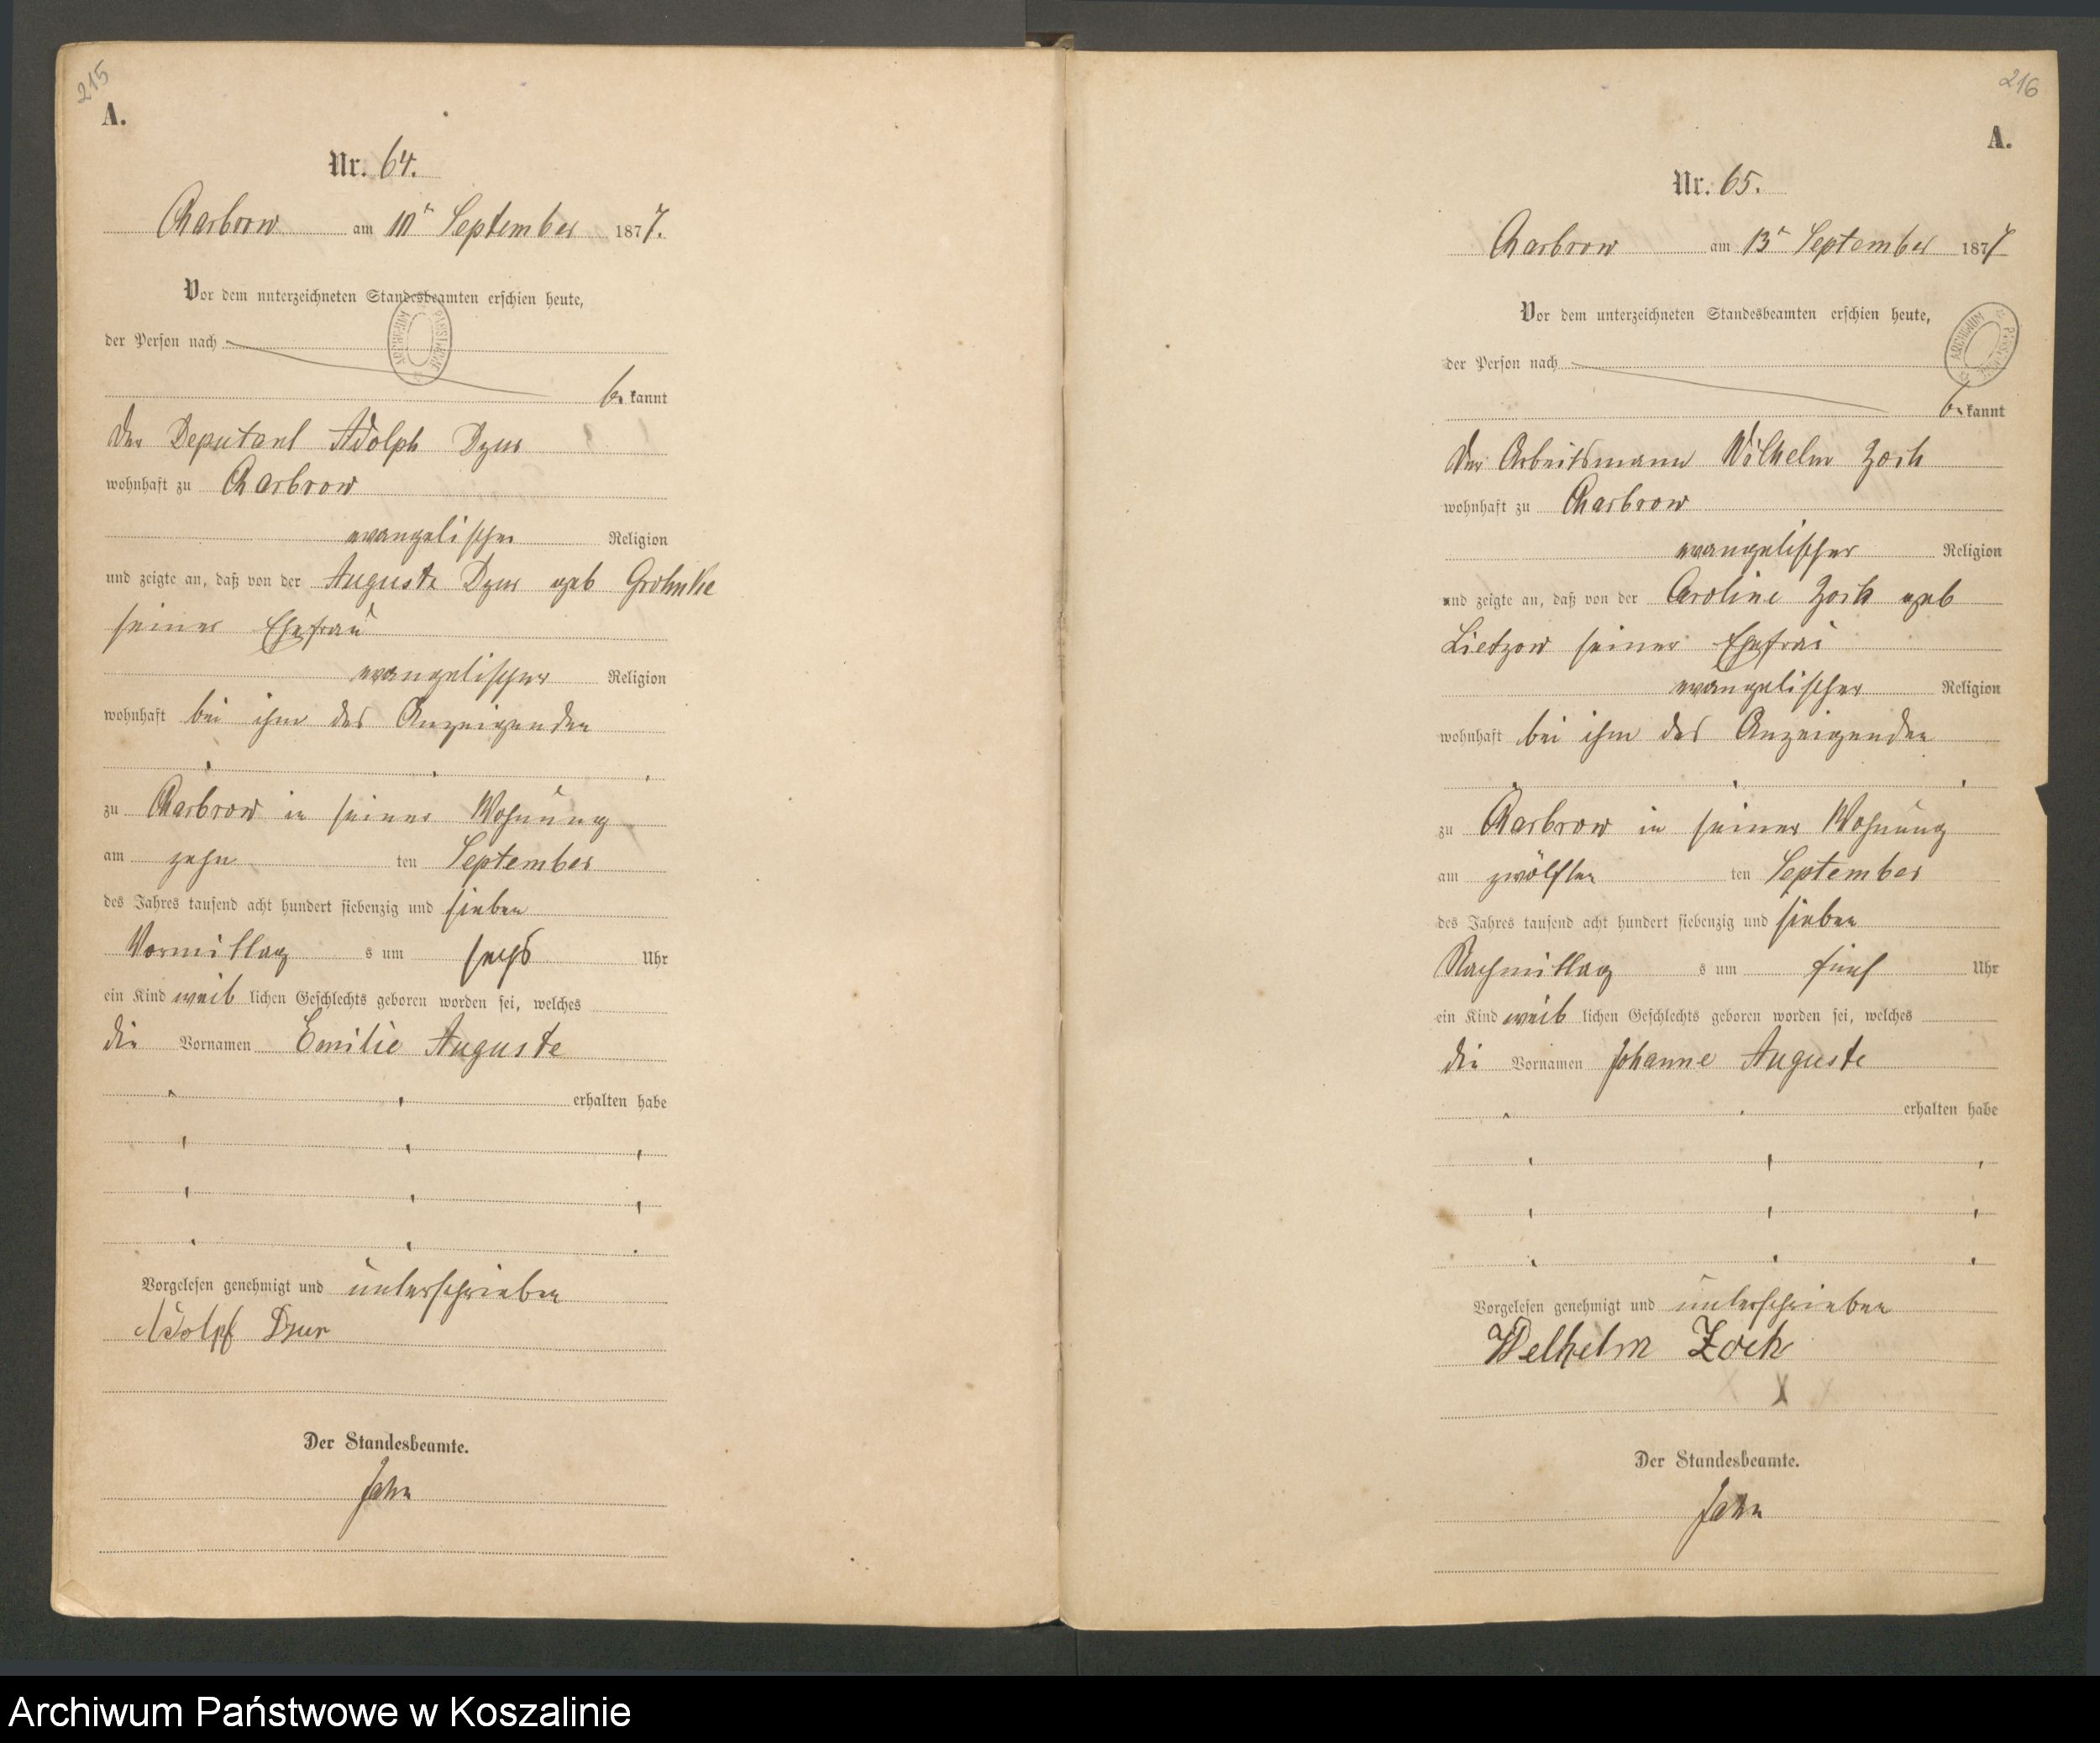 215
A.
Nr. 64.
Charbrow am 10t September 1877.
Vor dem unterzeichneten Standesbeamten erschien heute,
der Person nach
be kannt
der Deputant Adolph Dzur
wohnhaft zu Charbrow
evangelischer Religion
und zeigte an, daß von der Auguste Dzur geb Grohnke
seiner Ehefrau
evangelischer Religion
wohnhaft bei ihm des Anzeigenden
zu Charbrow in seiner Wohnung
am zehn ten September
des Jahres tausend acht hundert siebenzig und sieben
Vormittag s um sechs Uhr
ein Kind weib lichen Geschlechts geboren worden sei, welches
die Vornamen Emilie Auguste
erhalten habe
Vorgelesen genehmigt und unterschrieben
Adolph Dzur
Der Standesbeamte.
Jahn
216
A.
Nr. 65.
Charbrow am 13t September 1877
Vor dem unterzeichneten Standesbeamten erschien heute,
der Person nach
be kannt
der Arbeitsmann Wilhelm Zoch
wohnhaft zu Charbrow
evangelischer Religion
und zeigte an, daß von der Caroline Zoch geb
Lietzow seiner Ehefrau
evangelischer Religion
wohnhaft bei ihm des Anzeigenden
zu Charbrow in seiner Wohnung
am zwölften ten September
des Jahres tausend acht hundert siebenzig und sieben
Nachmittag s um fünf Uhr
ein Kind weib lichen Geschlechts geboren worden sei, welches
die Vornamen Johanne Auguste
erhalten habe
Vorgelesen genehmigt und unterschrieben
Welhelm Zoch
Der Standesbeamte.
Jahn
Archiwum Państwowe w Koszalinie